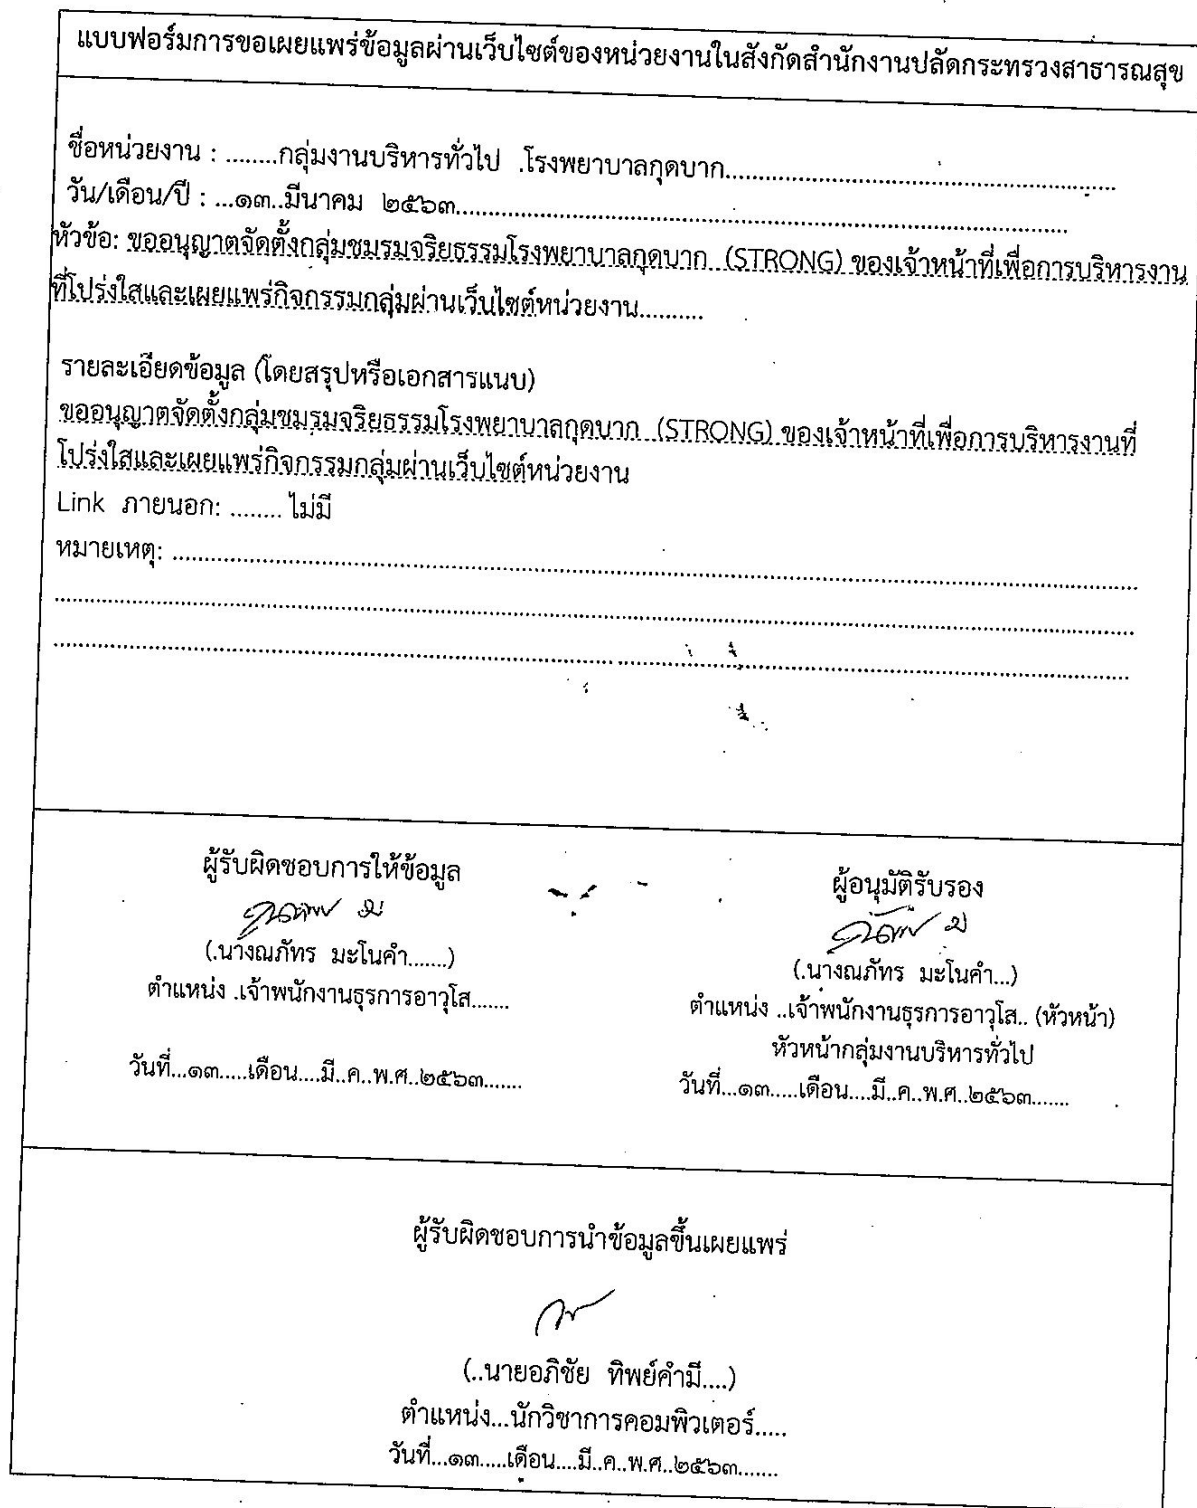 แบบฟอร์มการขอเผยแพร่ข้อมูลผ่านเว็บไซต์ของหน่วยงานในสังกัดสำนักงานปลัดกระทรวงสาธารณสุข
ชื่อหน่วยงาน : ........กลุ่มงานบริหารทั่วไป .โรงพยาบาลกุดบาก............................................................
วัน/เดือน/ปี : ...๑๓..มีนาคม ๒๕๖๓..............................................................................................
หัวข้อ: ขออนุญาตจัดตั้งกลุ่มชมรมจริยธรรมโรงพยาบาลกุดบาก (STRONG) ของเจ้าหน้าที่เพื่อการบริหารงาน
ที่โปร่งใสและเผยแพร่กิจกรรมกลุ่มผ่านเว็บไซต์หน่วยงาน..........
รายละเอียดข้อมูล (โดยสรุปหรือเอกสารแนบ)
ขออนุญาตจัดตั้งกลุ่มชมรมจริยธรรมโรงพยาบาลกุดบาก (STRONG) ของเจ้าหน้าที่เพื่อการบริหารงานที่
โปร่งใสและเผยแพร่กิจกรรมกลุ่มผ่านเว็บไซต์หน่วยงาน
Link ภายนอก: ........ ไม่มี
หมายเหตุ: ....................................................................................................................
ผู้รับผิดชอบการให้ข้อมูล
(.นางณภัทร มะโนคำ.......)
ตำแหน่ง .เจ้าพนักงานธุรการอาวุโส.......
วันที่...๑๓.....เดือน....มี..ค..พ.ศ..๒๕๖๓.......
ผู้อนุมัติรับรอง
(.นางณภัทร มะโนคำ...)
ตำแหน่ง ..เจ้าพนักงานธุรการอาวุโส.. (หัวหน้า)
หัวหน้ากลุ่มงานบริหารทั่วไป
วันที่...๑๓.....เดือน....มี..ค..พ.ศ..๒๕๖๓.......
ผู้รับผิดชอบการนำข้อมูลขึ้นเผยแพร่
(..นายอภิชัย ทิพย์คำมี....)
ตำแหน่ง...นักวิชาการคอมพิวเตอร์.....
วันที่...๑๓.....เดือน....มี..ค..พ.ศ..๒๕๖๓.......